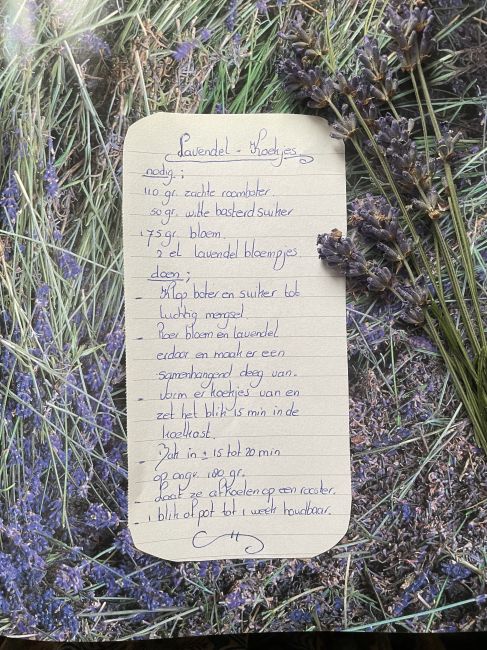 Lavendel - Koekjes
nodig ;
110 gr. zachte roomboter.
50 gr. witte basterdsuiker
175 gr. bloem.
2 el lavendel bloempjes.
doen ;
- Klop boter en suiker tot
luchtig mengsel.
- Roer bloem en lavendel
erdoor en maak er een
samenhangend deeg van.
- Vorm er koekjes van en
zet het blik 15 min in de
koelkast.
- Bak in ± 15 tot 20 min
op ongv. 180 gr.
- Laat ze afkoelen op een rooster.
- 1 blik of pot tot 1 week houdbaar.